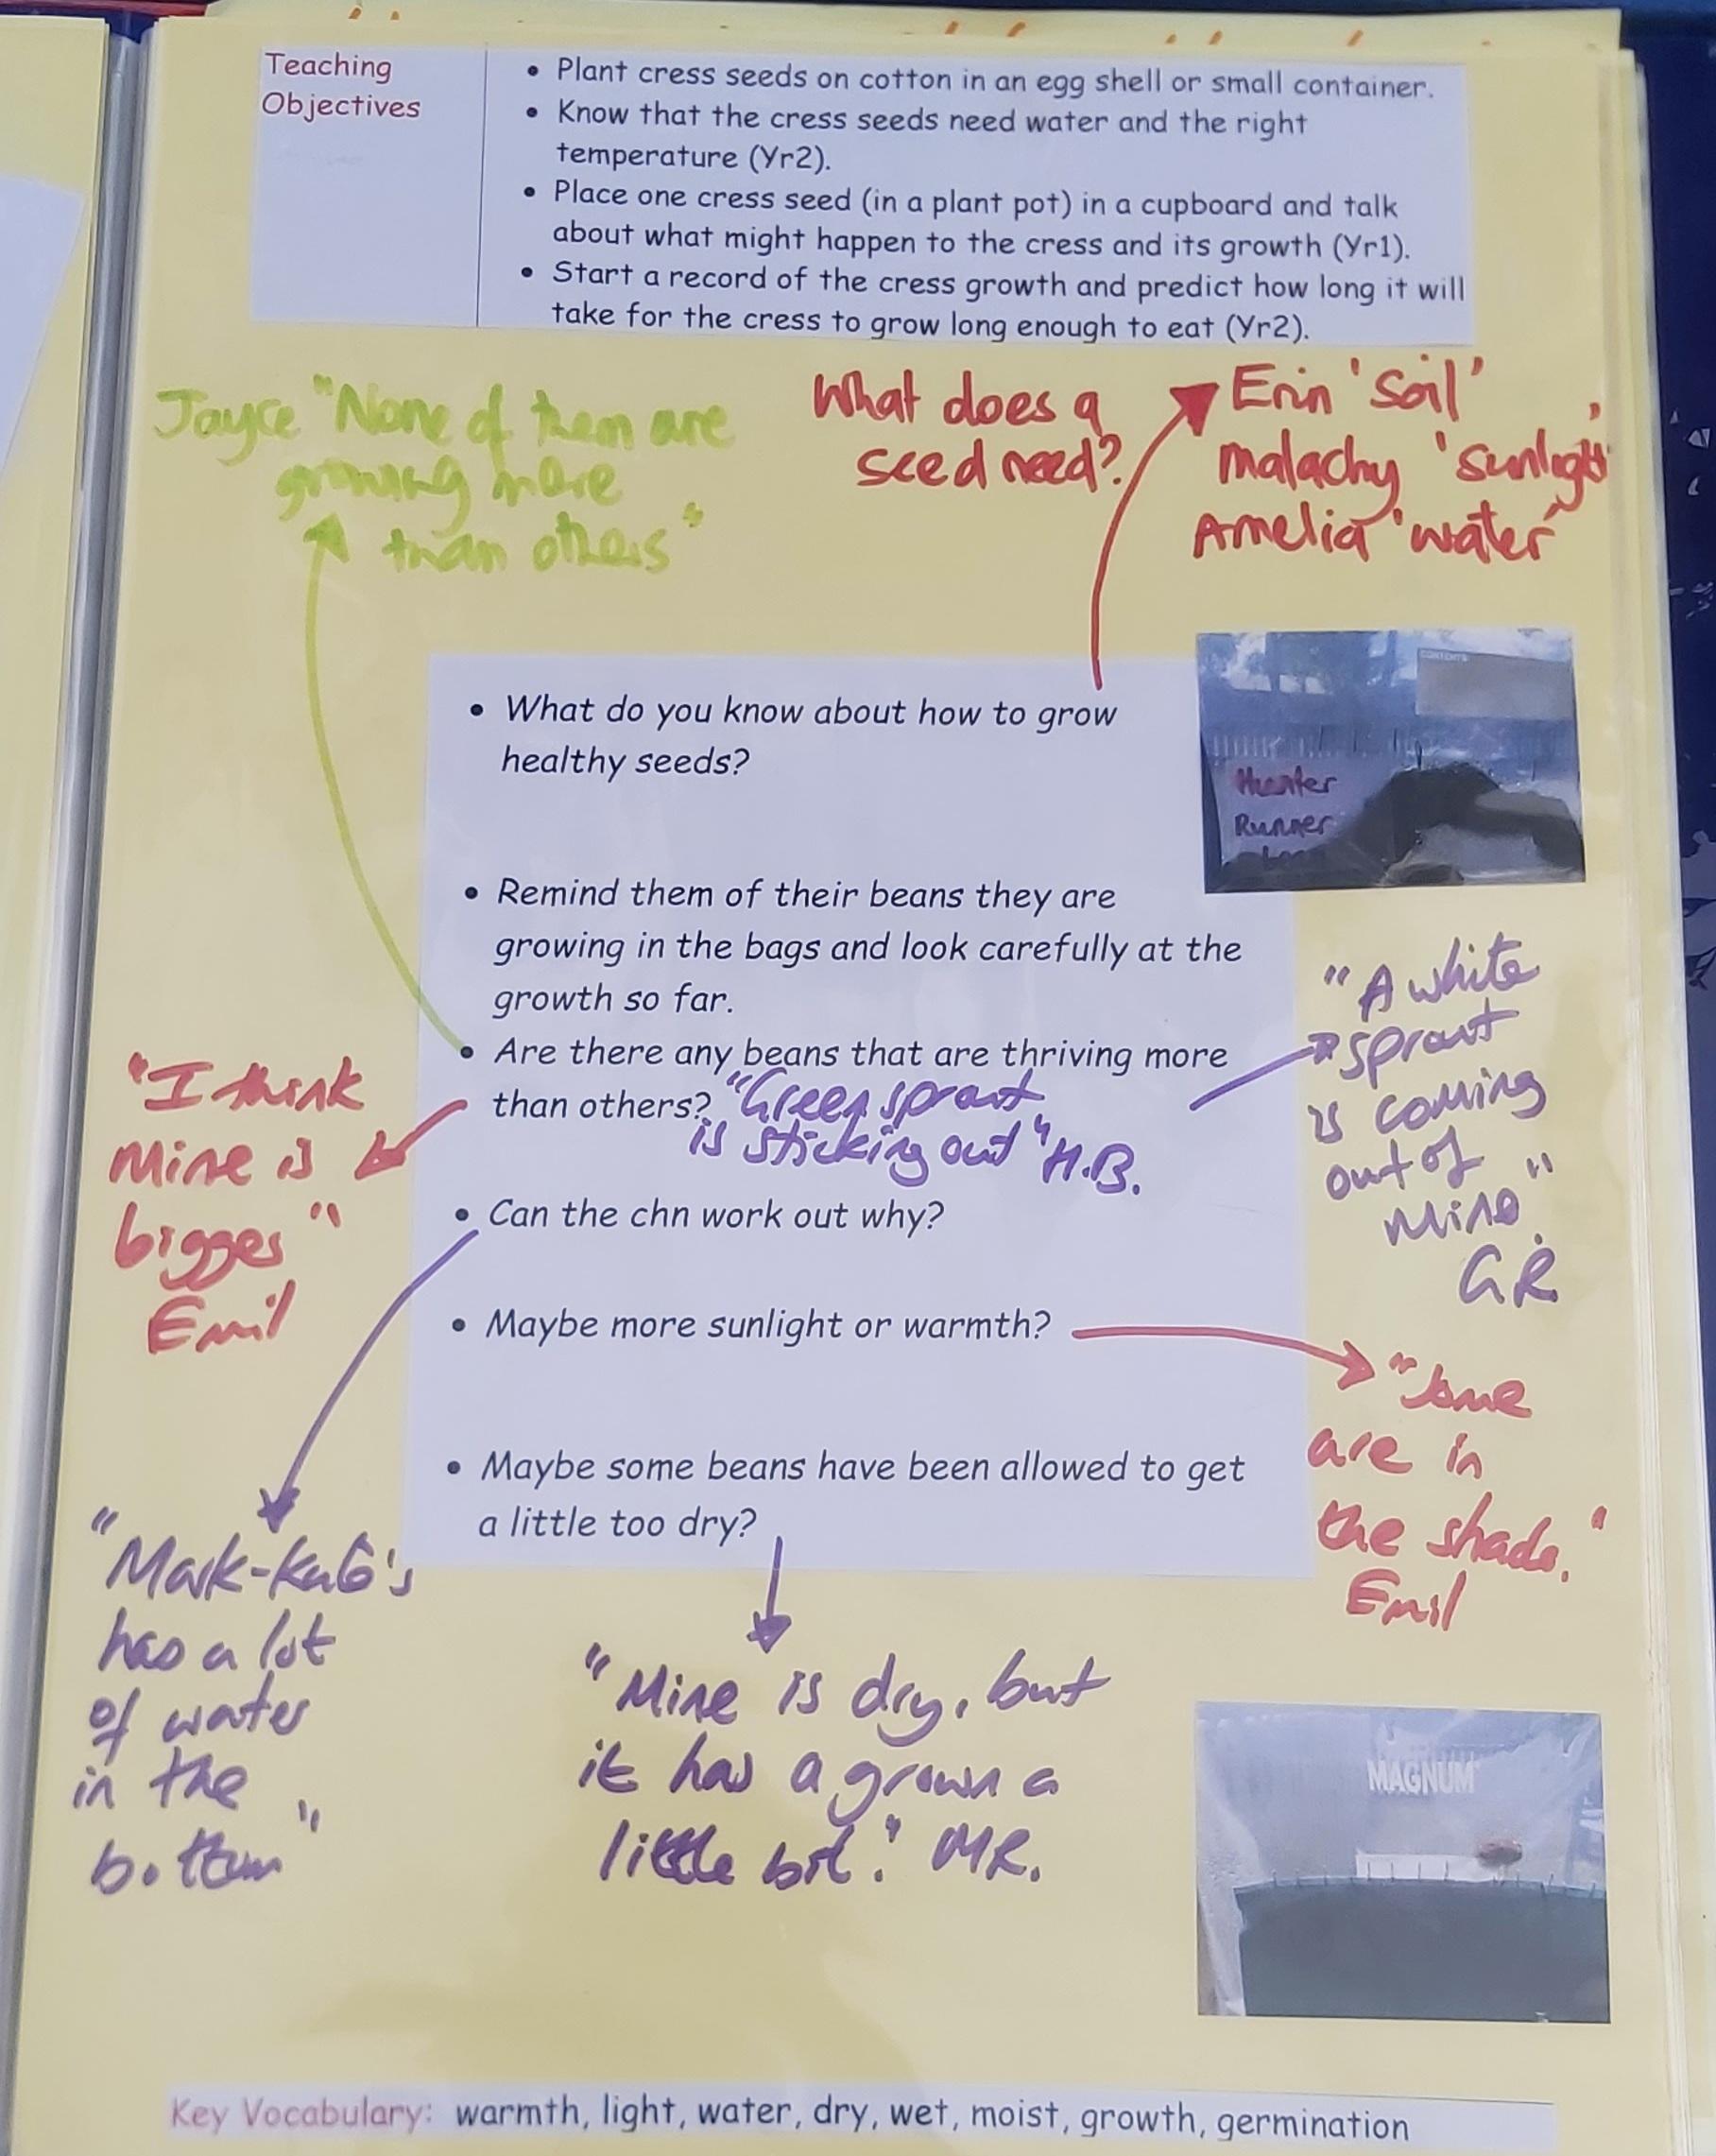 Teaching
Objectives
• Plant cress seeds on cotton in an egg shell or small container.
• Know that the cress seeds need water and the right
temperature (Yr2).
• Place one cress seed (in a plant pot) in a cupboard and talk
about what might happen to the cress and its growth (Yr1).
• Start a record of the cress growth and predict how long it will
take for the cress to grow long enough to eat (Yr2).
Jayce "None of them are
growing more
than others"
What does a
seed need?
Erin 'Soil'
malachy 'sunlight'
Amelia 'water'
• What do you know about how to grow
healthy seeds?
CONTENTS
Hunter
Runner
• Remind them of their beans they are
growing in the bags and look carefully at the
growth so far.
• Are there any beans that are thriving more
than others?
"Green sprout
is sticking out" H.B.
"A white
sprout
is coming
out of
mine"
G.R.
"I think
mine is
bigges"
Emil
• Can the chn work out why?
• Maybe more sunlight or warmth?
"Some
are in
the shade."
Emil
• Maybe some beans have been allowed to get
a little too dry?
"Mark-
has a lot
of water
in the
bottum"
"Mine is dry, but
it has a grown a
little bit." MR.
MAGNUM
Key Vocabulary: warmth, light, water, dry, wet, moist, growth, germination